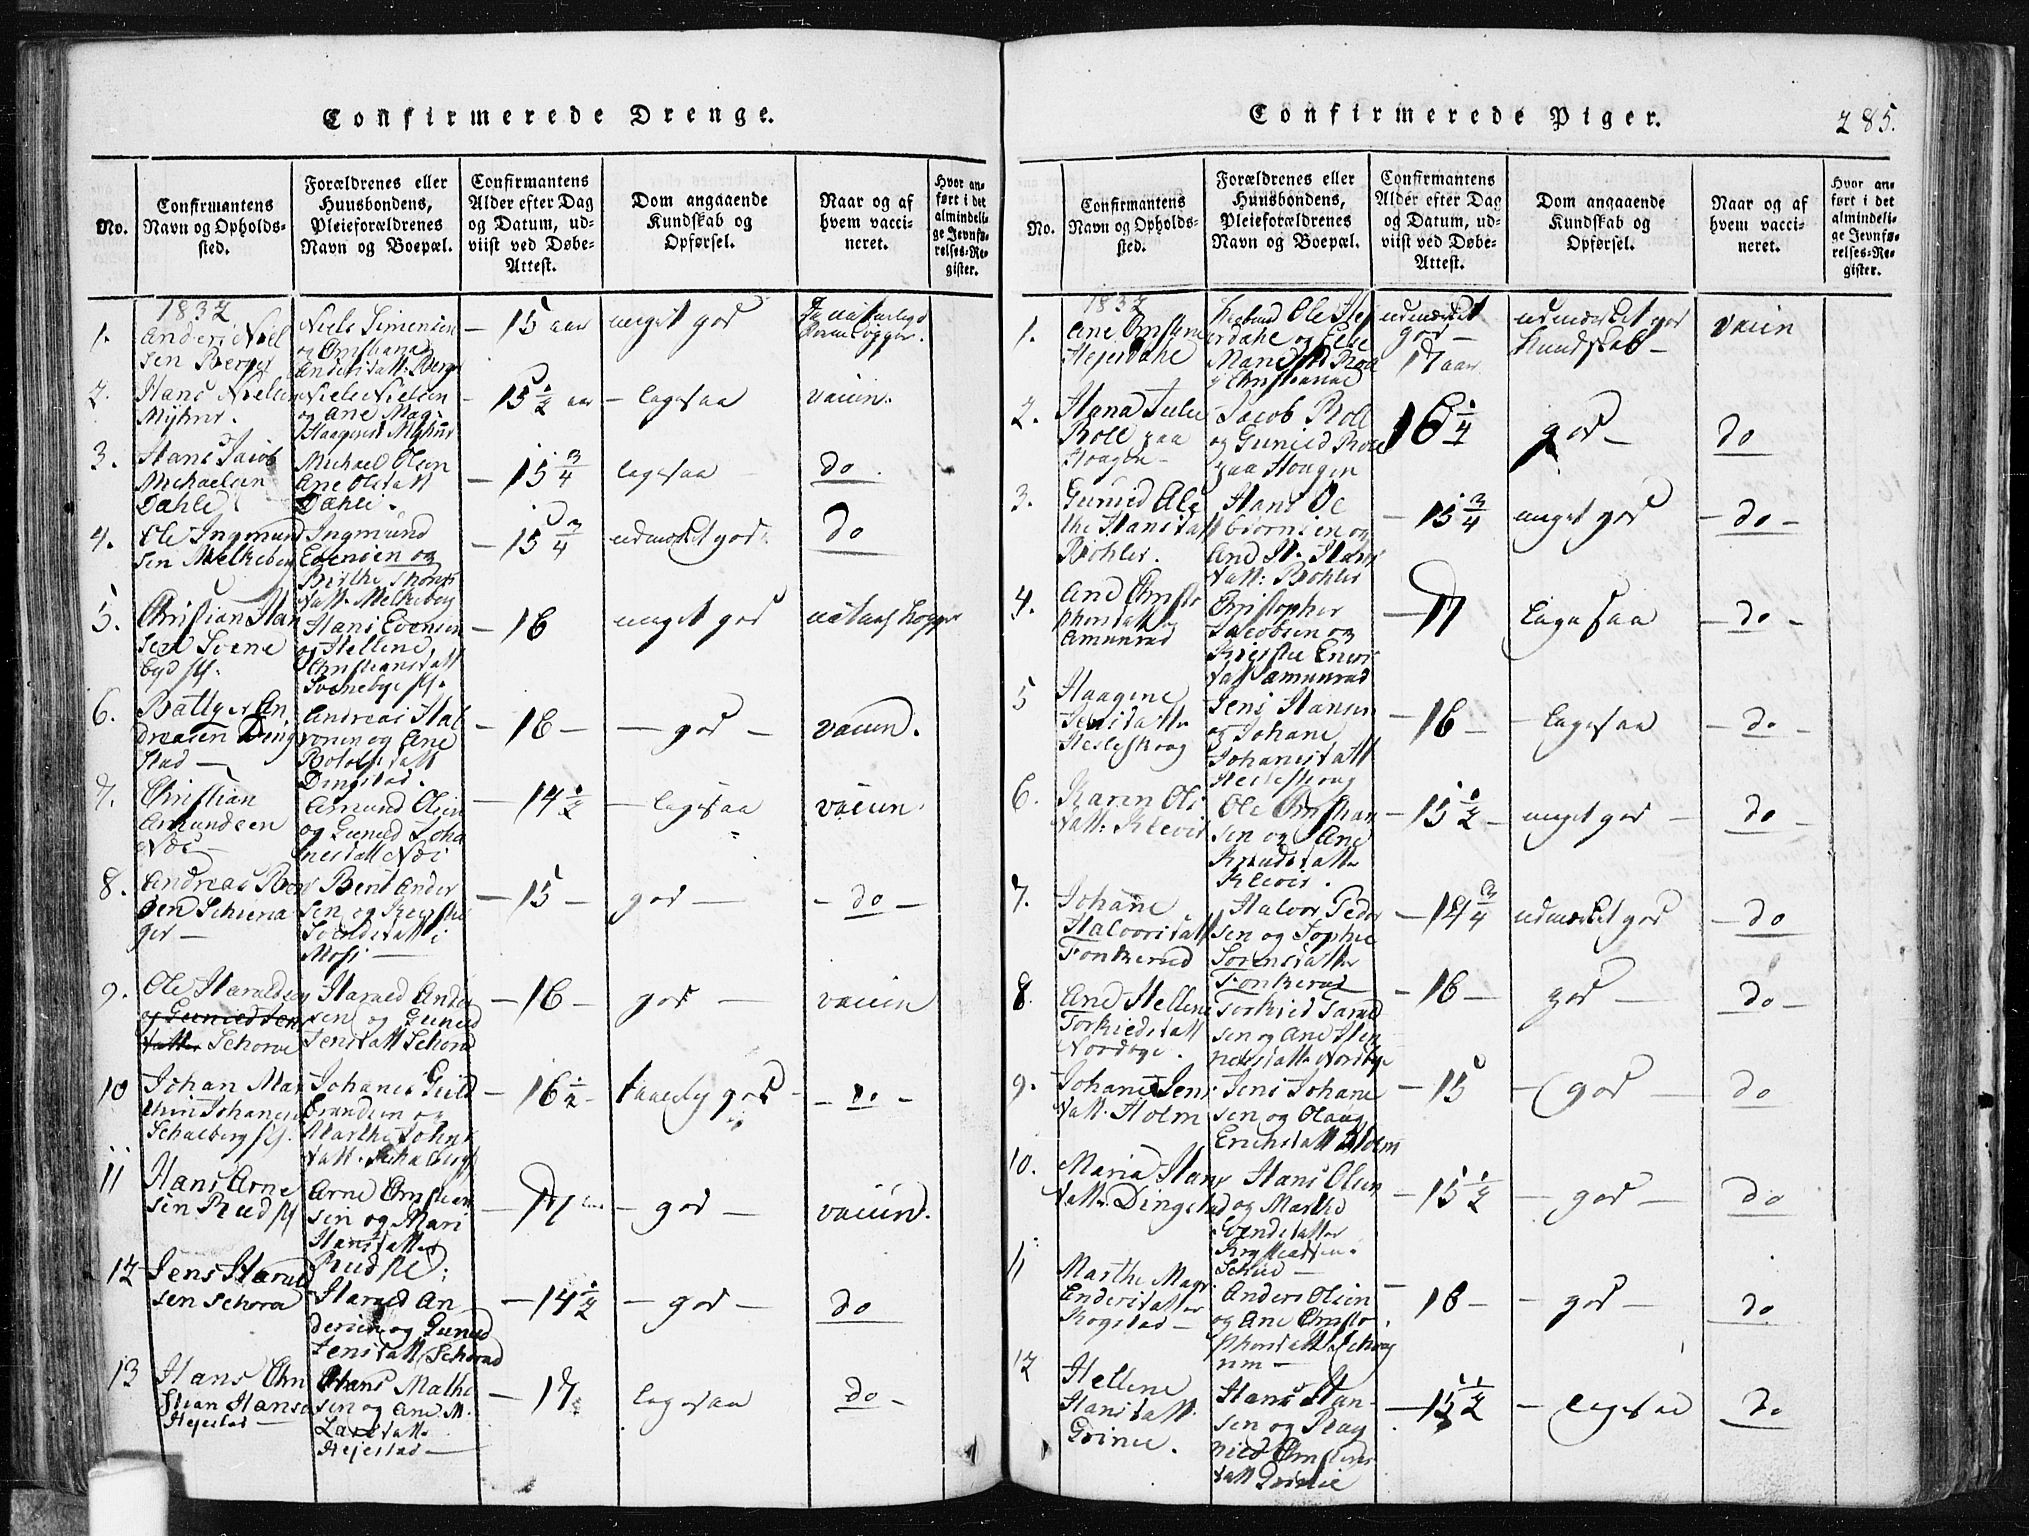 Confirmerede Drenge.
No.
Confirmantens
Navn og Opholds-
sted.
Forældrenes eller
Huusbondens,
Pleieforældrenes
Navn og Boepæl.
Confirmantens
Alder efter Dag
og Datum, ud-
viist ved Døbe-
Attest.
Dom angaaende
Kundskab og
Opførsel.
Naar og af
hvem vacci-
neret.
Hvor an-
ført i det
almindeli-
ge Jevnfø-
relses-Re-
gister.
1832
1.
Anders Niel
sen Berger
Niels Simensen
og Christiane
Andersdatt. Berger
15 aar
meget god
2.
Hans Nielsen
Myhrer.
Niels Nielsen
og Ane Mag:
Haagens Myhrer
15 1/2 aar
ligesaa
vaccin.
3.
Hans Jacob
Michaelsen
Dahle
Michael Olsen
Ane Olsdatt
Dahle.
15 3/4
ligesaa
do.
4.
Ole Ingmund
sen Melkeberg
Ingmund
Evensen og
Birthe Thores
datt. Melkeberg
15 3/4
udmærket god.
do
5.
Christian Han
sen Svene
bye Pl.
Hans Evensen
og Hellene
Christiansdatt
Svenebye Pl.
16
meget god
6.
An
dreasen Ding
stad
Andreas Hal
vorsen og Ane
Dingstad.
16
god
vaccin.
7.
Christian
Amundsen
Næs
Amund Olsen
og Gunild Joha
nesdatt Næs
14 1/2
ligesaa
vaccin.
8.
Andreas Bent
sen Schiena
ger
Bent Ander
sen og Kirsthe
15
god
do
9.
Ole Haraldsen
Schorae
Harald Ander
sen og Gunild
Jensdatt Schorad
16
god
vaccin
10
Johan Mar
thin Johanes
Schalberg Pl.
Johanes Guld
brandsen og
Marthe Johns
datt. Schalberg
16 1/2
taalelig god
do
11
Hans Arne
sen Rud Pl
Arne Christian
sen og Mari
Hansdatter
Rud Pl.
17
god
vaccin.
12
Jens Harald
sen Schora
Harald An
dersen og Gunild
Jensdatt Schorad
14 1/2
god
do
13
Hans Chri
stian Hanse
Hejestad
Hans Mathi
sen og Ane M.
Larsdatt.
Hejestad
17
ligesaa
do
Confirmerede Piger.
285.
No.
Confirmantens
Navn og Opholds-
sted.
Forældrenes eller
Huusbondens,
Pleieforældrenes
Navn og Boepæl.
Confirmantens
Alder efter Dag
og Datum, ud-
viist ved Døbe-
Attest.
Dom angaaende
Kundskab og
Opførsel.
Naar og af
hvem vacci-
neret.
Hvor an-
ført i det
almindeli-
ge Jevnfø-
relses-Re-
gister.
1832
1.
Ane Christine
Hejerdahl
Ole Hej
erdahl og Else
Marie
Christiania
udmærket
god
17 aar
udmærket god
Kundskab
vaccin
2.
Hana Julie
Roll paa
Hougen
Jacob Roll
og Gunild Roll
paa Hougen
16 1/4
god
do
3.
Gunild Ale
the Hansdatt
Bøhler.
Hans Ol
biornsen og
Ane H. Hans
datt: Bøhler
15 3/4
meget god
do
4.
Ane Christo
phersdatt
Amunrud
Christopher
Jacobsen og
Kirsthe Eners
datt Amunrud
17
ligesaa
do
5
Haagine
Jensdatter
Helleskoug
Jens Hansen
og Johane
Johanesdatt
Helleskoug
16
ligesaa
do
6.
Karen Ols
datt: Klever
Ole Christian
sen og Ane
Knudsdatter
Klever.
15 1/2
meget god
do
7.
Johane
Halvorsdatt
Fonkerud
Halvor Peder
sen og Sophie
Sørensdatter
Fonkerud
14 3/4
udmærket god
do
8.
Ane Hellene
Torkieldsdatt
Nordbye.
Torkild Harald
sen og Ane Hen
Nordbye
16
god
do
9.
Johane Jens
datt. Holm
Jens Johane
sen og Olaug
Erichsdatt Holm
15
god
do
10.
Maria Hans
datt. Dingstad
Hans Olsen
og Marthe
15 1/2
god
do
11
Marthe Magr.
Andersdatter
Rogstad
Anders Olsen
og Ane Christo
16
god
do
12
Hellene
Hansdatt.
Grinie.
Hans Han-
sen og Rag
nild Christens
datt Grinie
15 1/2
ligesaa
do